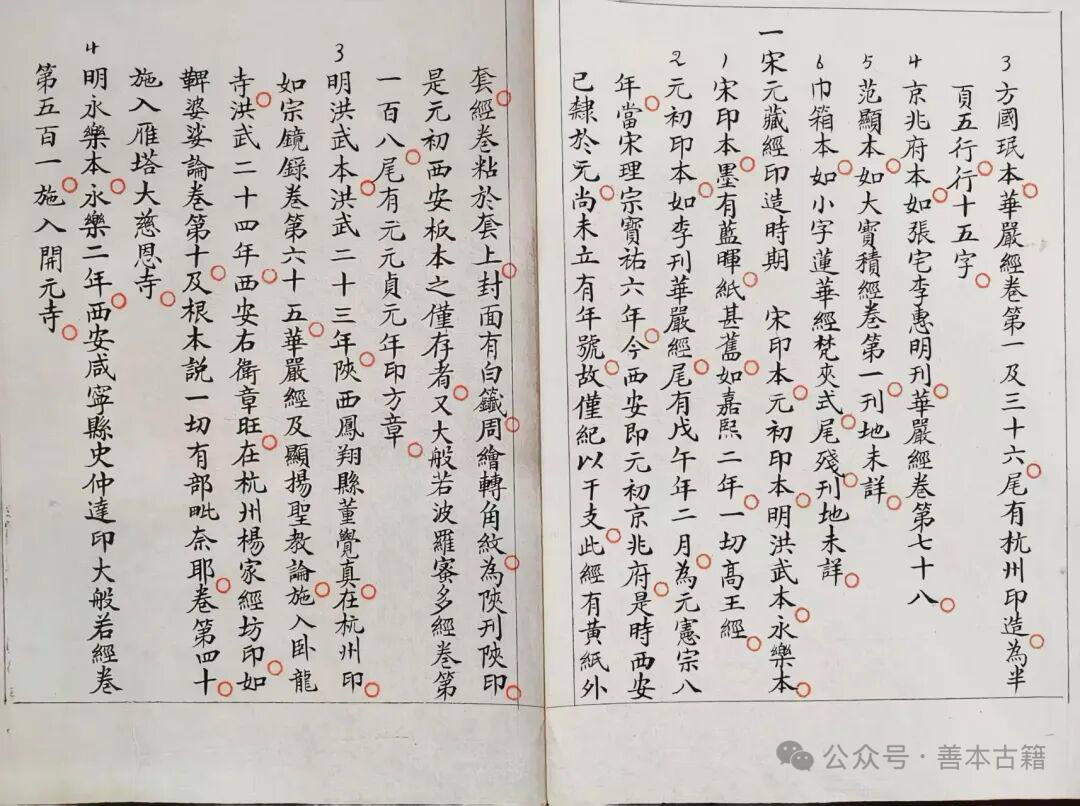 3方國珉本。華嚴經卷第一及三十六。尾有杭州印造。為半
頁五行。行十五字。
4京兆府本。如張宅李惠明刊華嚴經卷第七十八。
5范顯本。如大寶積經卷第一。刊地未詳。
6巾箱本。如小字蓮華經梵夾式。尾殘。刊地未詳。
一宋元藏經印造時期 宋印本。元初印本。明洪武本。永樂本。
1宋印本。墨有藍暉。紙甚舊。如嘉熙二年。一切高王經。
2元初印本。如李刊華嚴經。尾有戊午年二月。為元憲宗八
年。當宋理宗寶祐六年。今西安即元初京兆府。是時西安
已隸於元。尚未立有年號。故僅紀以干支。此經有黃紙外
套。經卷粘於套上。封面有白籤。周繪轉角紋。為陝刊陝印。
是元初西安板本之僅存者。又大般若波羅蜜多經卷第
一百八。尾有元元貞元年印方章。
3明洪武本。洪武二十三年。陝西鳳翔縣董覺真。在杭州印。
如宗鏡錄卷第六十五。華嚴經及顯揚聖教論。施入卧龍
寺。洪武二十四年。西安右衛章旺。在杭州楊家經坊印。如
鞞婆娑論卷第十。及根本説一切有部毗奈耶。卷第四十。
施入雁塔大慈恩寺。
4明永樂本。永樂二年。西安咸寧縣史仲達印大般若經卷
第五百一。施入開元寺。
公众号·善本古籍